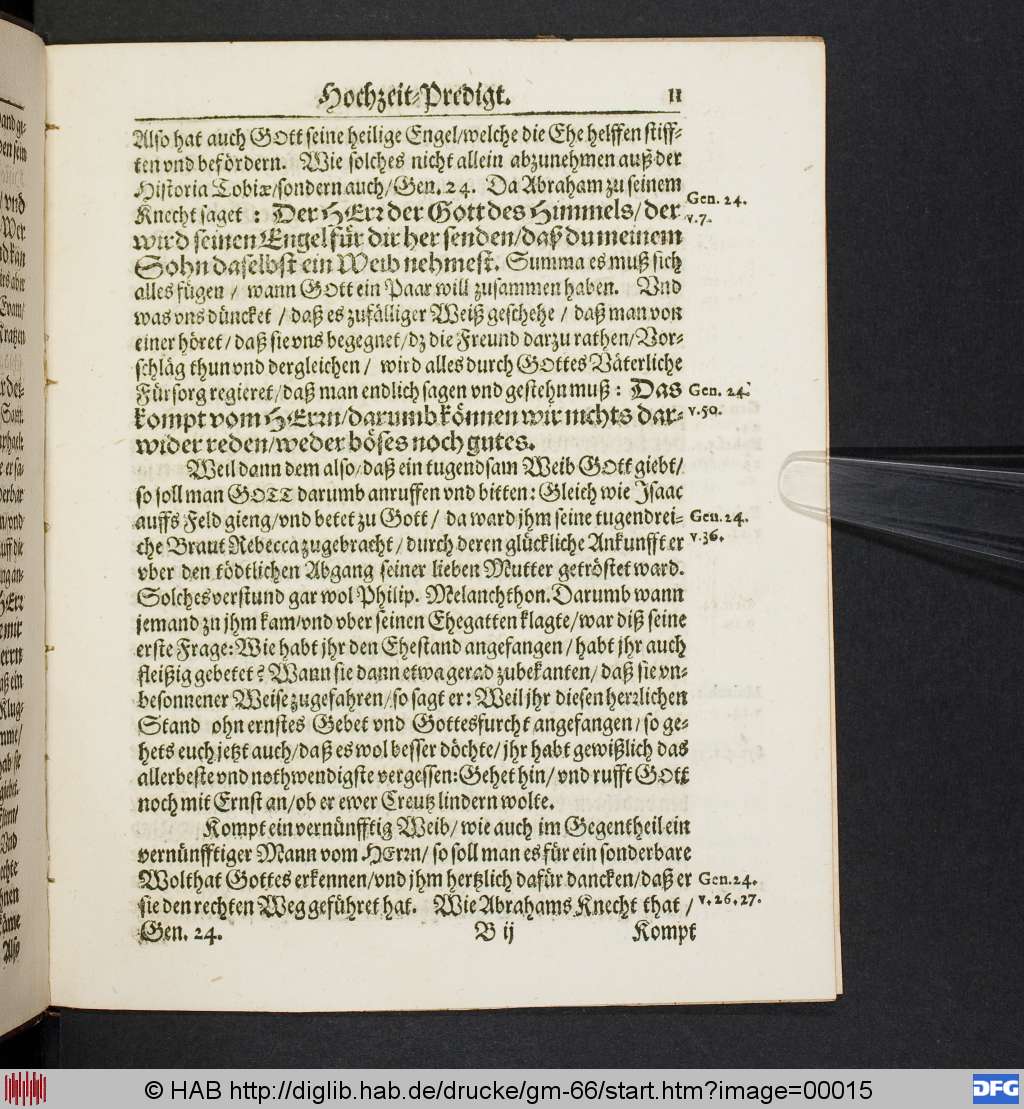 Hochzeit-Predigt. 11
Also hat auch GOtt seine heilige Engel/welche die Ehe helffen stiff-
ten vnd befördern. Wie solches nicht allein abzunehmen auß der
Historia Tobiæ/sondern auch/Gen. 24. Da Abraham zu seinem
Knecht saget : Der HErr der Gott des Himmels/ der
wird seinen Engel für dir her senden/daß du meinem
Sohn daselbst ein Weib nehmest. Summa es muß sich
alles fügen / wann GOtt ein Paar will zusammen haben. Vnd
was vns düncket / daß es zufälliger Weiß geschehe / daß man von
einer höret/ daß sie vns begegnet/dz die Freund darzu rathen/Vor-
schläg thun vnd dergleichen / wird alles durch GOttes Väterliche
Fürsorg regieret/daß man endlich sagen vnd gestehn muß : Das
kompt vom HErrn/darumb können wir nichts dar-
wider reden/weder böses noch gutes.
Gen. 24.
v.7.
Gen. 24.
v.50.
Weil dann dem also/daß ein tugendsam Weib GOtt giebt/
so soll man GOTT darumb anruffen vnd bitten: Gleich wie Isaac
auffs Feld gieng/vnd betet zu Gott / da ward jhm seine tugendrei-
che Braut Rebecca zugebracht/ durch deren glückliche Ankunfft er
vber den tödtlichen Abgang seiner lieben Mutter getröstet ward.
Solches verstund gar wol Philip. Melanchthon. Darumb wann
jemand zu jhm kam/vnd vber seinen Ehegatten klagte/war diß seine
erste Frage: Wie habt jhr den Ehestand angefangen / habt jhr auch
fleißig gebetet? Wann sie dann etwa gerad zu bekanten/ daß sie vn-
besonnener Weise zugefahren/so sagt er: Weil jhr diesen herrlichen
Stand ohn ernstes Gebet vnd Gottesfurcht angefangen/ so ge-
hets euch jetzt auch/daß es wol besser döchte/ jhr habt gewißlich das
allerbeste vnd nothwendigste vergessen: Gehet hin/ vnd rufft GOtt
noch mit Ernst an/ob er ewer Creutz lindern wolte.
Gen. 24.
v.36.
Kompt ein vernünfftig Weib/ wie auch im Gegentheil ein
vernünfftiger Mann vom HErrn/ so soll man es für ein sonderbare
Wolthat Gottes erkennen/vnd jhm hertzlich dafür dancken/daß er
sie den rechten Weg geführet hat. Wie Abrahams Knecht that /
Gen.24.
v. 26. 27.
Gen. 24. B ij Kompt
© HAB http://diglib.hab.de/drucke/gm-66/start.htm?image=00015
DFG